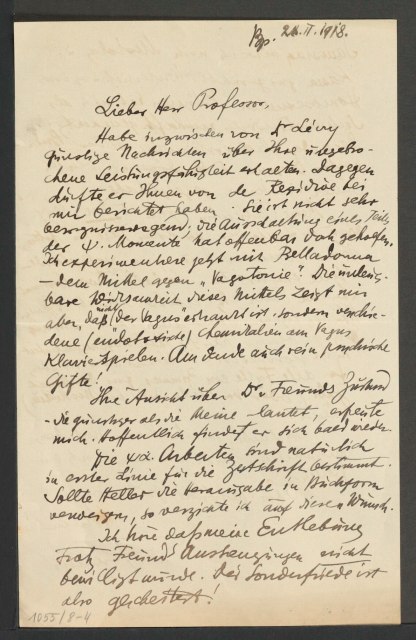 Bp. 24. II. 1918.
Lieber Herr Professor,
Habe inzwischen von Dr Lévy
günstige Nachrichten über Ihre ungebro-
chene Leistungsfähigkeit erhalten. Dagegen
dürfte er Ihnen von der Rezidive bei
mir berichtet haben. Sie ist nicht sehr
besorgniserregend; die Ausschaltung eines Teils
der Ψ. Momente hat offenbar doch geholfen.
Ich experimentiere jetzt mit Belladonna
– dem Mittel gegen „Vagotonie". Die
bare Wirksamkeit dieses Mittels zeigt mir
aber, daß nicht „der Vagus" erkrankt ist, sondern verschie-
dene (endotoxische) Chemikalien am Vagus
Klavier spielen. Am Ende auch rein psychische
Gifte!
Ihre Ansicht über Dr v. Freunds Zustand
– die günstiger als die meine lautet, erfreute
mich. Hoffentlich findet er sich bald wieder.
Die Arbeiten sind natürlich
in erster Linie für die Zeitschrift bestimmt.
Sollte Heller die Herausgabe in Buchform
verweigern, so verzichte ich auf diesen Wunsch.
Ich höre daß meine Enthebung
trotz Freunds Anstrengungen nicht
bewilligt wurde. Der Sonderfriede ist
also gescheitert!
1055/8-4